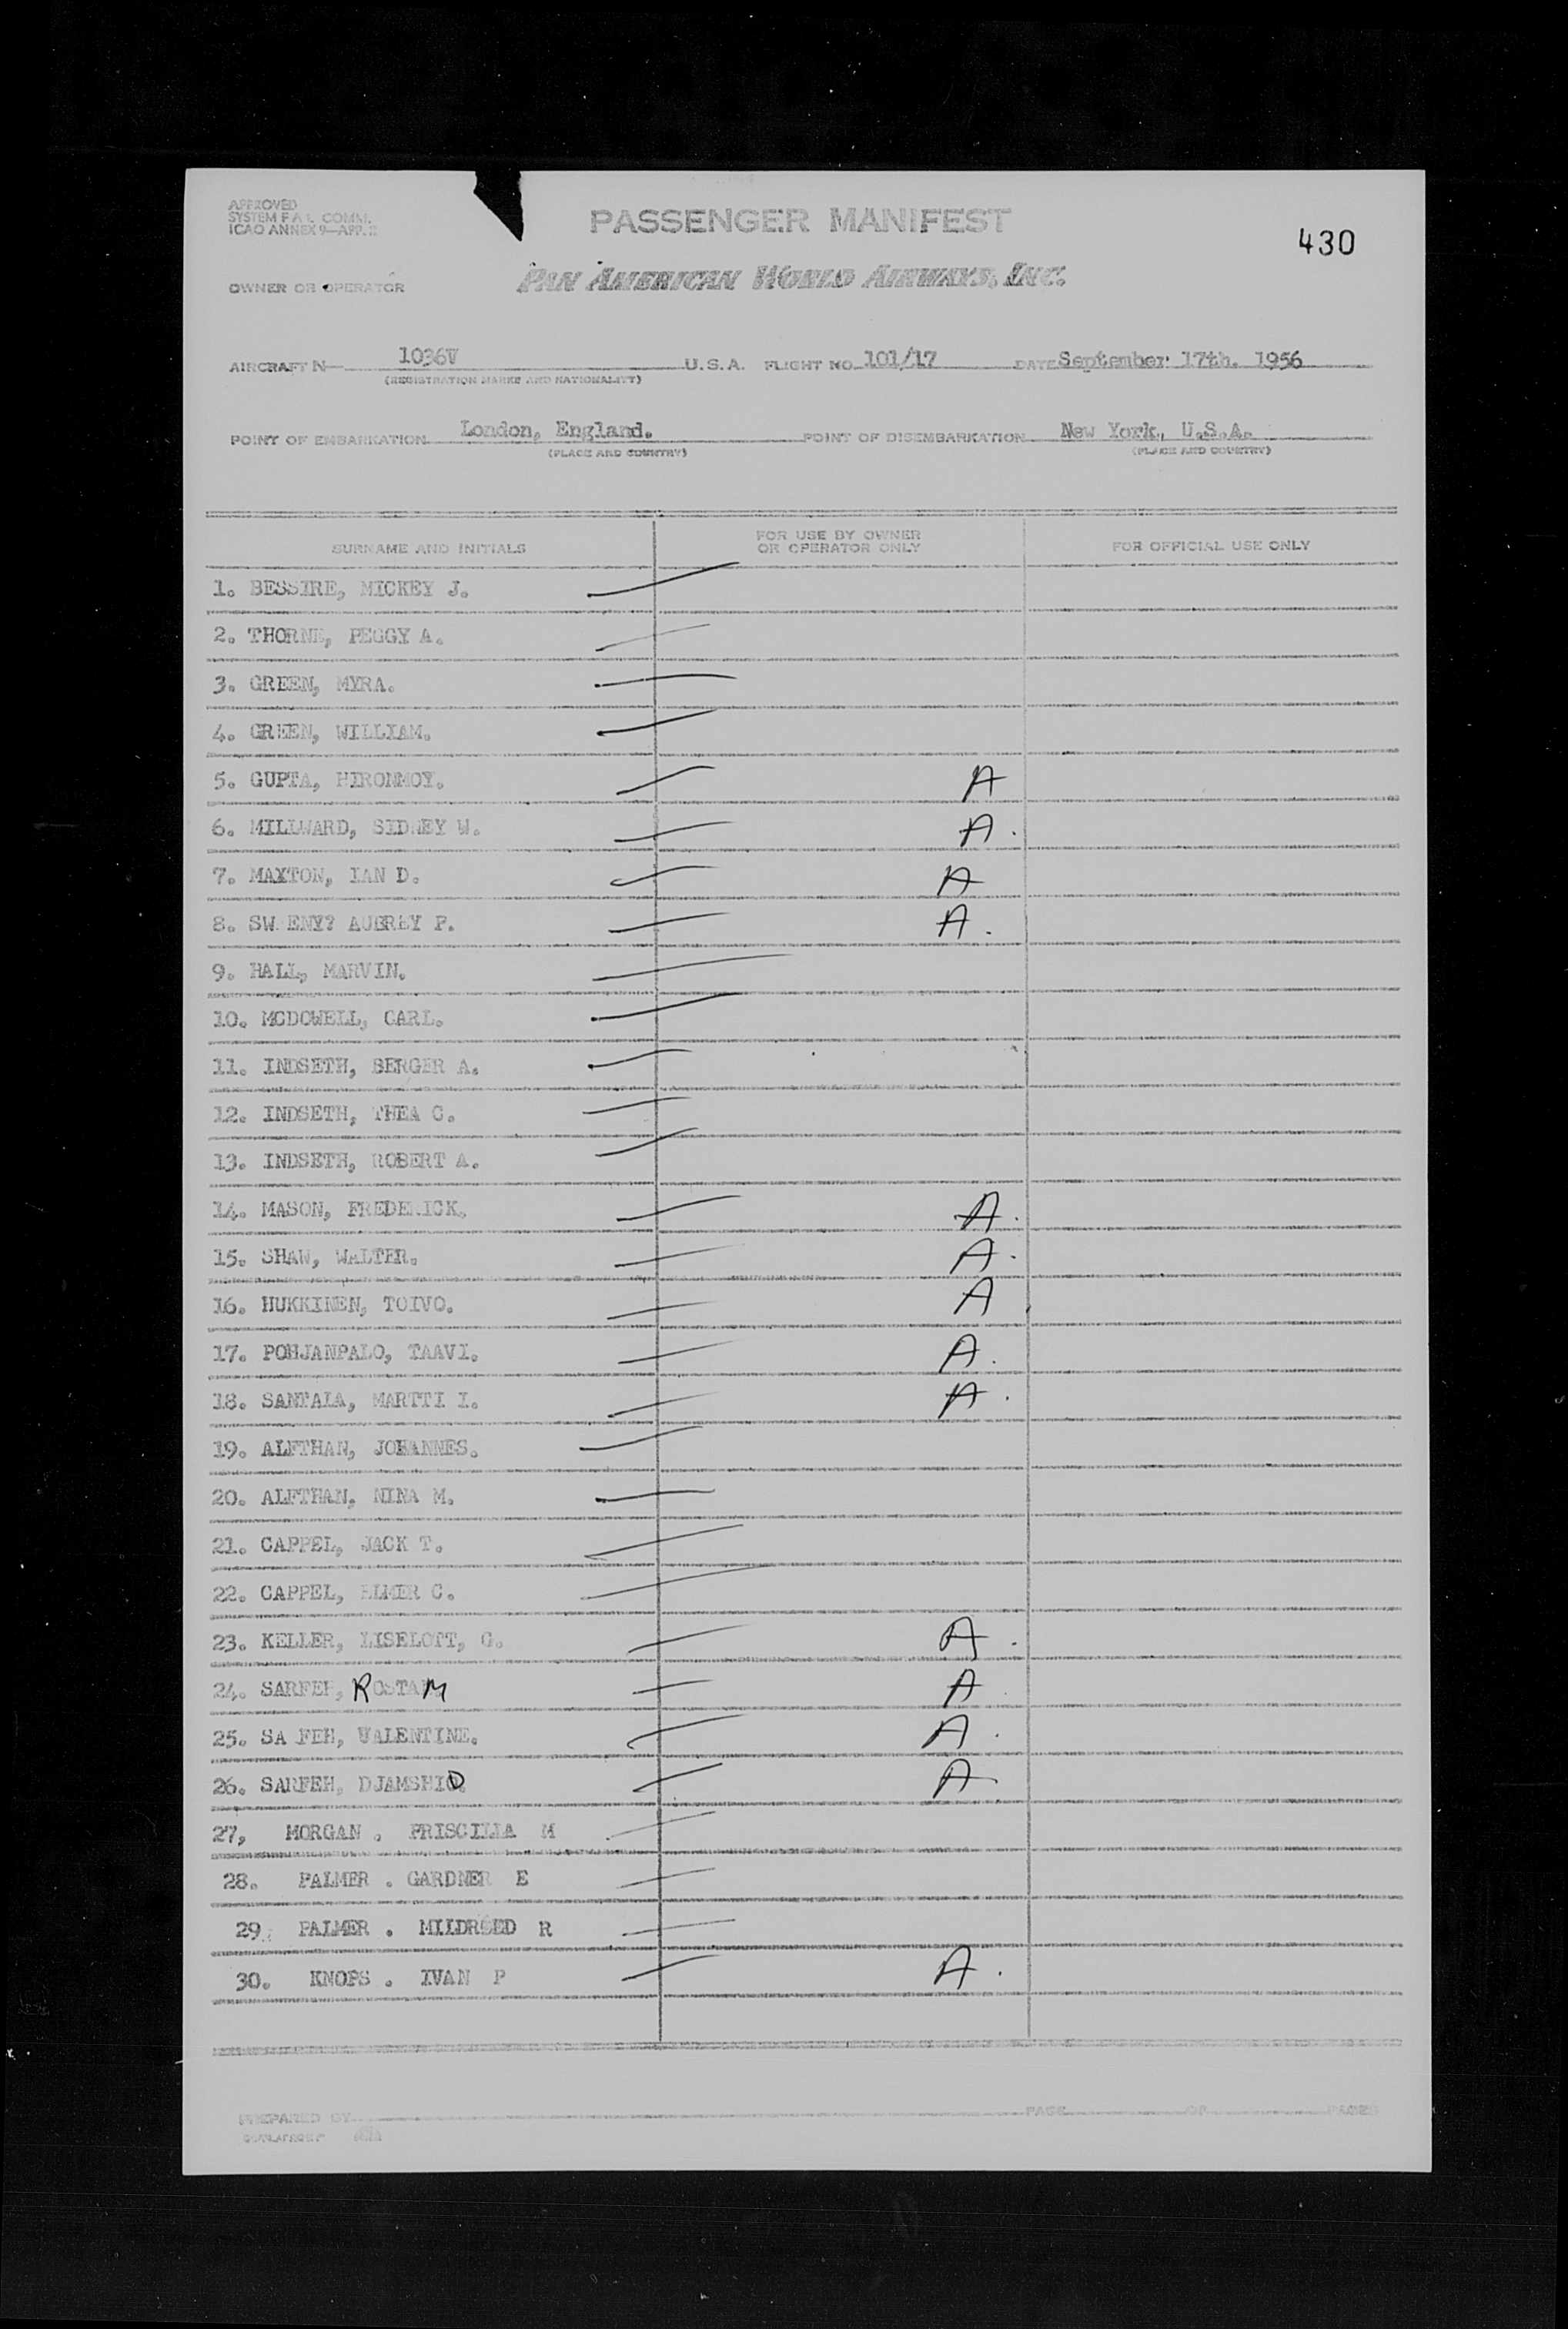 APPROVED
SYSTEM F.A.L. COMM.
ICAO ANNEX 9—APP. 2
PASSENGER MANIFEST
430
OWNER OR OPERATOR
PAN AMERICAN WORLD AIRWAYS, INC.
AIRCRAFT N— 1036V U.S.A. FLIGHT NO. 101/17 DATE September 17th. 1956
(REGISTRATION MARKS AND NATIONALITY)
POINT OF EMBARKATION London, England. POINT OF DISEMBARKATION New York, U.S.A.
(PLACE AND COUNTRY) (PLACE AND COUNTRY)
SURNAME AND INITIALS FOR USE BY OWNER OR OPERATOR ONLY FOR OFFICIAL USE ONLY
1. BESSIRE, MICKEY J.
2. THORNE, PEGGY A.
3. GREEN, MYRA.
4. GREEN, WILLIAM.
5. GUPTA, HIRONMOY. A
6. MILLWARD, SIDNEY W. A.
7. MAXTON, IAN D. A
8. SW ENY? AUBREY P. A.
9. HALL, MARVIN.
10. MCDOWELL, CARL.
11. INDSETH, BERGER A.
12. INDSETH, THEA C.
13. INDSETH, ROBERT A.
14. MASON, FREDERICK. A.
15. SHAW, WALTER. A.
16. HUKKINEN, TOIVO. A
17. POHJANPALO, TAAVI. A.
18. SANTALA, MARTTI I. A.
19. ALFTHAN, JOHANNES.
20. ALFTHAN, NINA M.
21. CAPPEL, JACK T.
22. CAPPEL, ELMER C.
23. KELLER, LISELOTT, G. A.
24. SARFEH, ROSTAM A
25. SA FEH, VALENTINE. A.
26. SARFEH, DJAMSHID. A
27, MORGAN . PRISCILLA M
28. PALMER . GARDNER E
29. PALMER . MILDRSED R
30. KNOPS . IVAN P A.
PREPARED BY PAGE OF PAGES